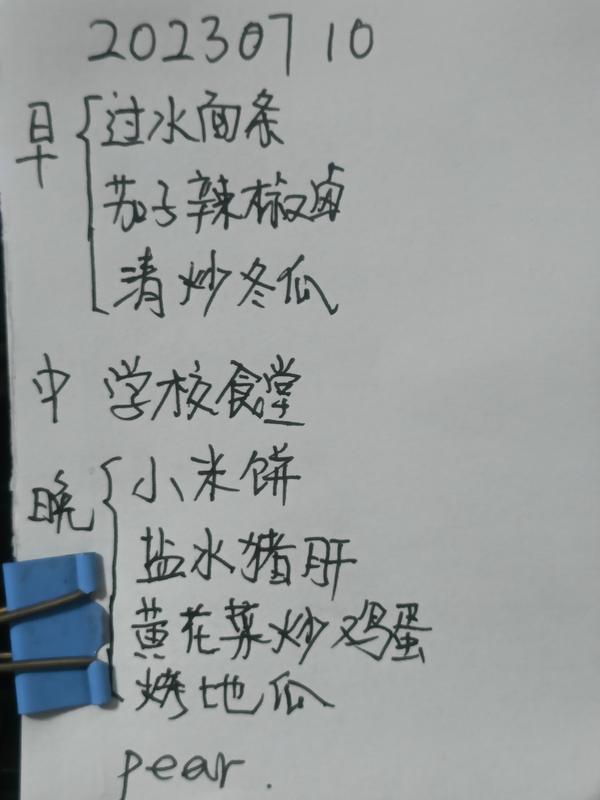 20230710
早 过水面条
茄子辣椒卤
清炒冬瓜
中 学校食堂
晚 小米饼
盐水猪肝
黄花菜炒鸡蛋
烤地瓜
pear.